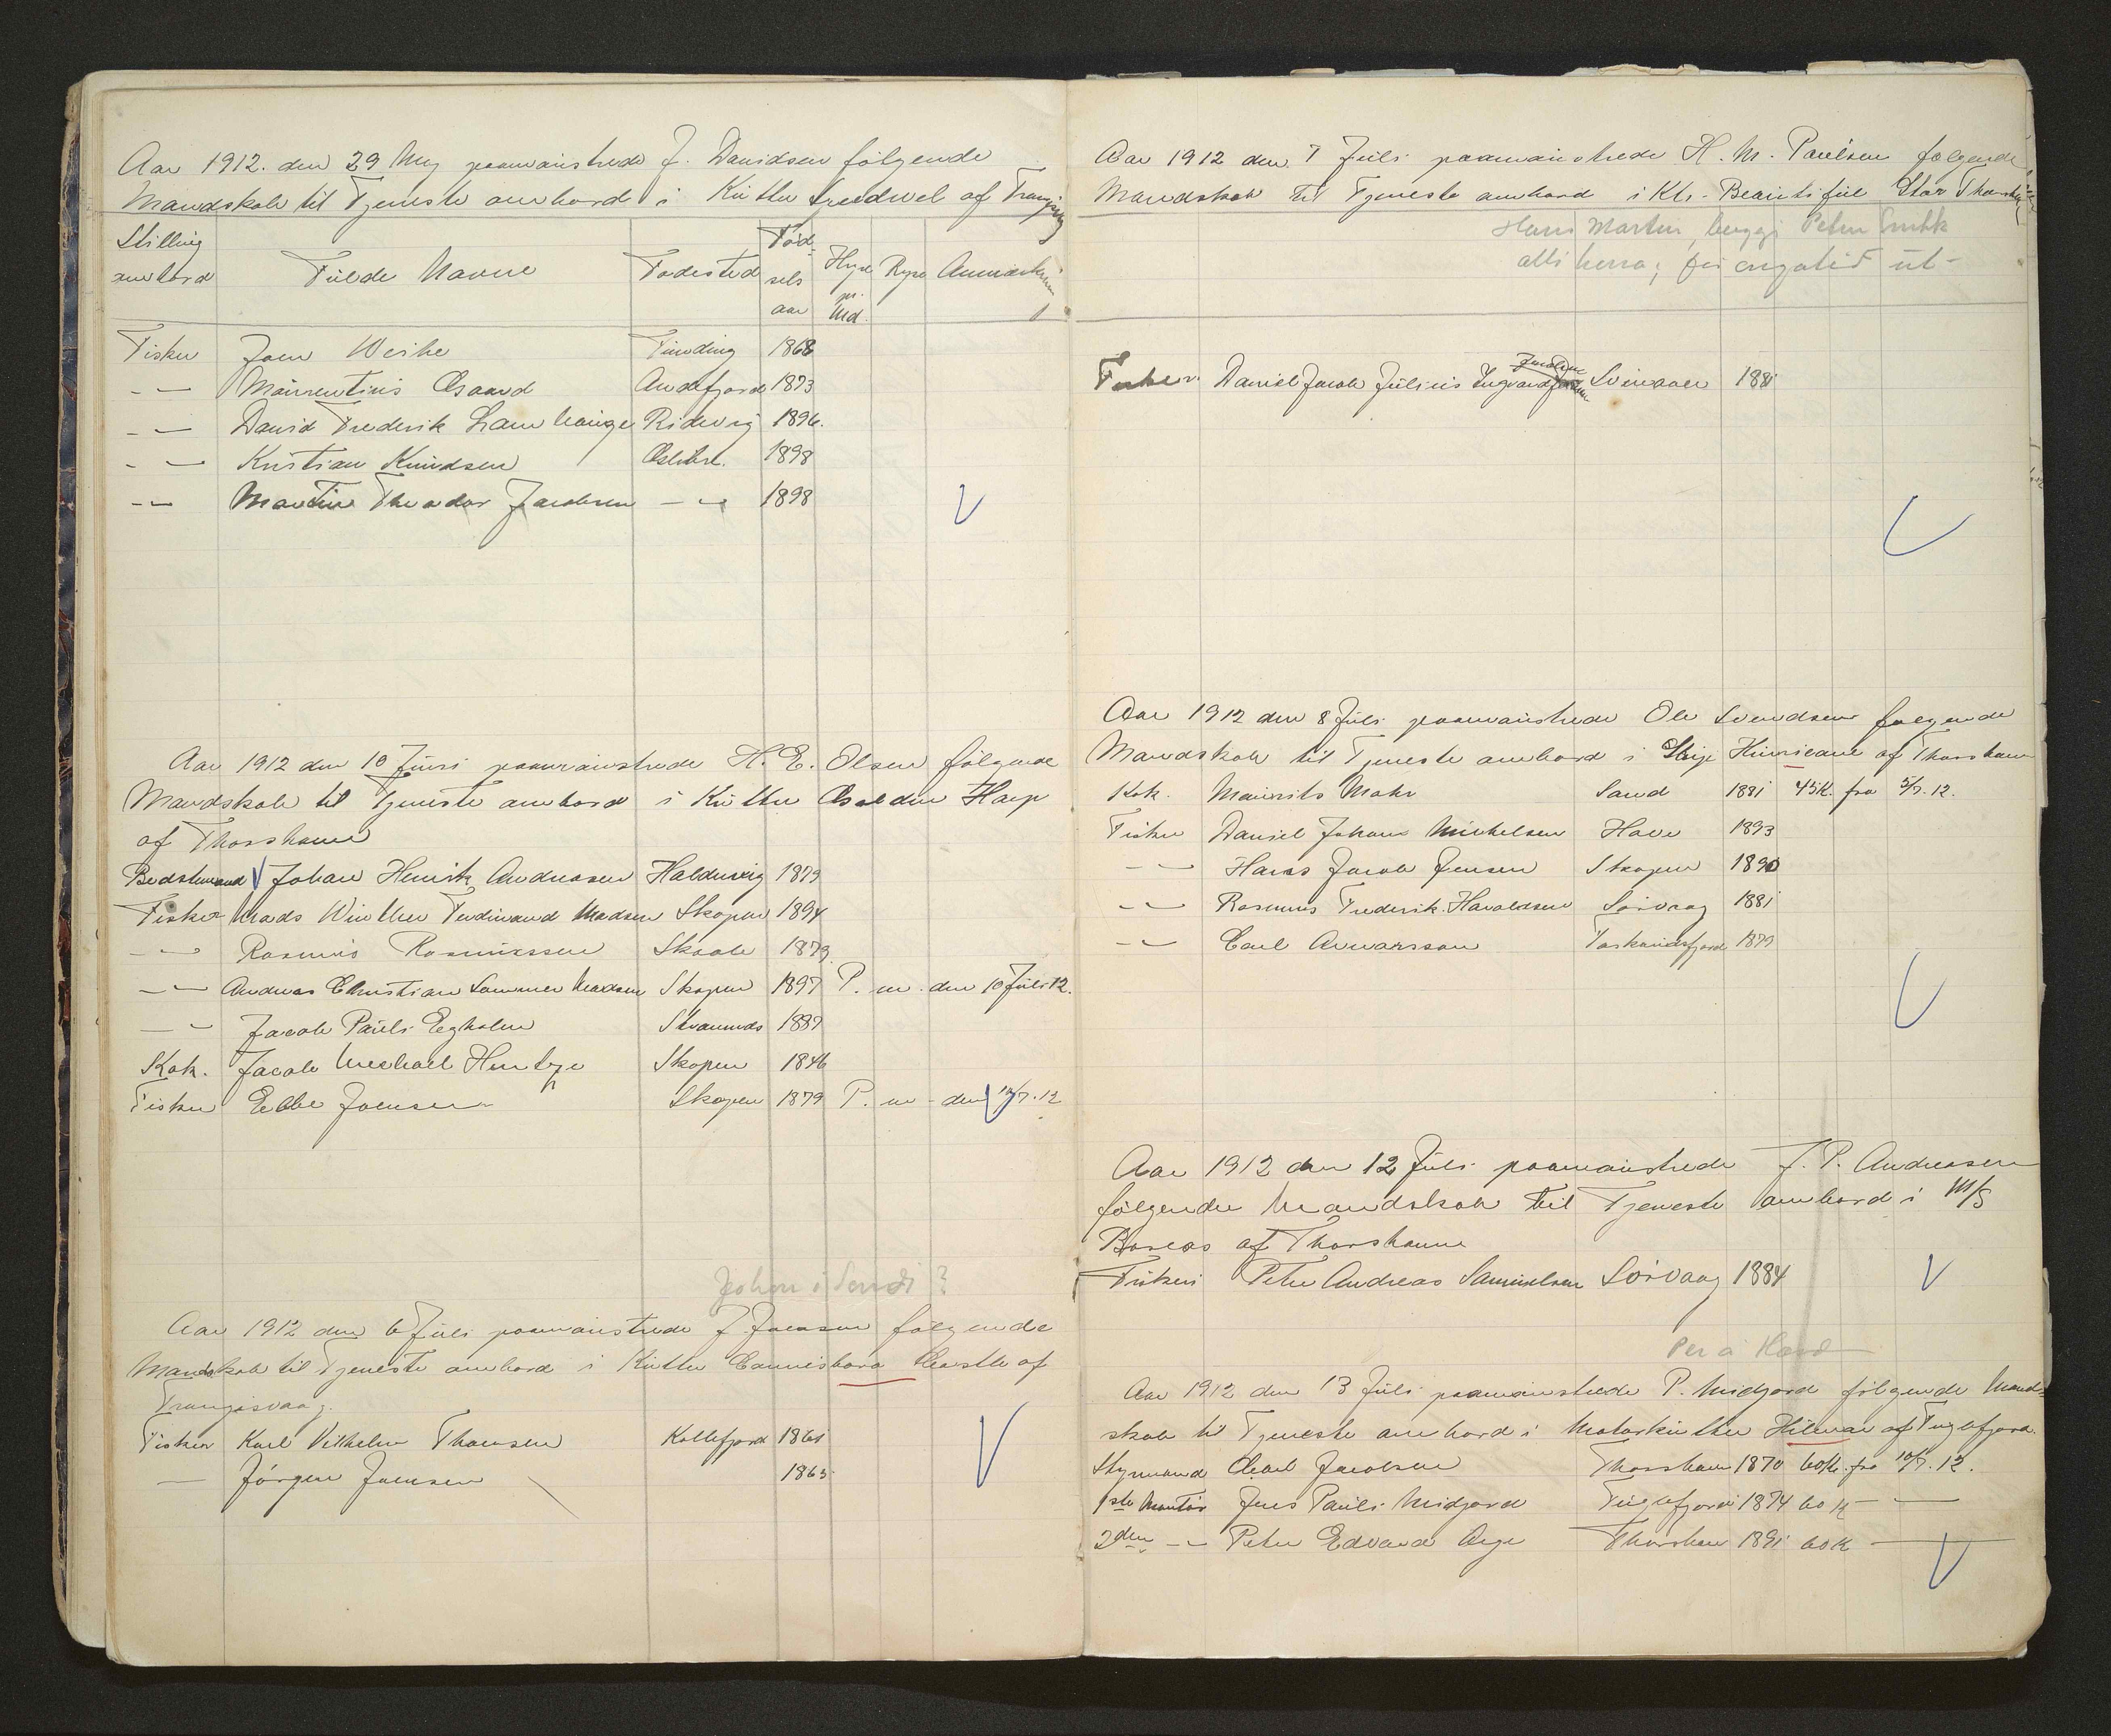 Aar 1912. den 29 Maj paamønstrede J. Davidsen følgende
Mandskab til Tjeneste ombord i Kutter af
Stilling ombord Fulde Navne Fødested Fødselsaar Hyre pr. Md. Anmærkn
Fisker Joen Weihe 1868
-"- Andefjord 1873
-"- David Frederik Lamhauge Ridevig 1896.
-"- Kristian Knudsen 1898
-"- Martin Theodor Jacobsen -"- 1898
Aar 1912 den 10 Juni paamønstrede H. E. Olsen følgende
Mandskab til Tjeneste ombord i Kutter Harp
af Thorshavn
Bedstemand Johan Henrik Andreasen Haldervig 1879
Fisker Mads Winther Ferdinand Madsen Skopen 1894
-"- Rasmus Rasmussen Skaale 1879
-"- Andreas Christian Madsen Skopen 1897 P. m. den 10 Juli 12.
-"- Jacob Pauli Egholm 1889
Kok. Jacob Michael Hentze Skopen 1846
Fisker Ebbe Joensen Skopen 1879 P. m - den /7.12
Johan i Sandi ?
Aar 1912 den 6 Juli paamønstrede J. Joensen følgende
Mandskab til Tjeneste ombord i Kutter Castle af
Trangisvaag.
Fisker Karl Vilhelm Thomsen Kollefjord 1861
- Jørgen Joensen 1863
Aar 1912 den 7 Juli paamønstrede H. M. Poulsen følgende
Mandskab til Tjeneste ombord i Ktr. Beautiful Star Thorshavn
Hans Martin, beggi Petur
alli
Fisker Daniel Jacob Julius Ingvard 1881
Aar 1912 den 8 Juli paamønstrede Ole Svendsen følgende
Mandskab til Tjeneste ombord i Slup Hurricane af Thorshavn
Kok. Maurits Mohr Sand 1881 45 K. fra 5/7.12.
Fisker Daniel Johan Michelsen Hove 1893
-"- Hans Jacob Jensen Skopen 1890
-"- Rasmus Frederik Haraldsen Sörvaag 1881
-"- Carl 1879
Aar 1912 den 12 Juli paamønstrede J. P. Andreasen
følgende Mandskab til Tjeneste ombord i M/S
Boreas af Thorshavn
Fisker Peter Andreas Samuelsen Sörvaag 1884
Per á
Aar 1912 den 13 Juli paamønstrede P. Midjord følgende Mand-
skab til Tjeneste ombord i Motorkutter Hilmar af Fuglefjord.
Styrmand Jacobsen Thorshavn 1870 60 K. fra /7.12.
1ste Jens Pauli Midjord Fuglefjord 1874 60 K - -
2den -"- Peter Edvard Arge Thorshavn 1891 60 K -